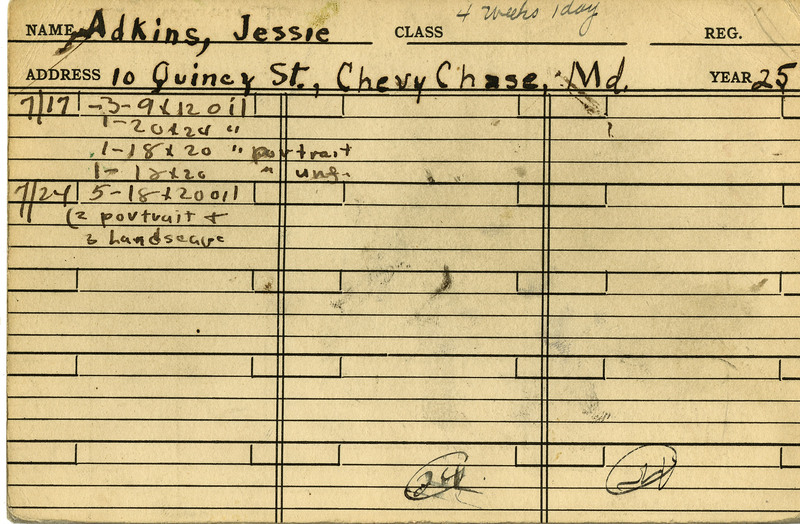 4 weeks 1 day
NAME Adkins, Jessie CLASS REG.
ADDRESS 10 Quincy St., Chevy Chase, Md. YEAR 25
7/17 -3-9x12 oil
1-20x24 "
1-18x20 " portrait
1-18x20 " unf.
7/24 5-18x20 oil
(2 portrait +
3 Landscape